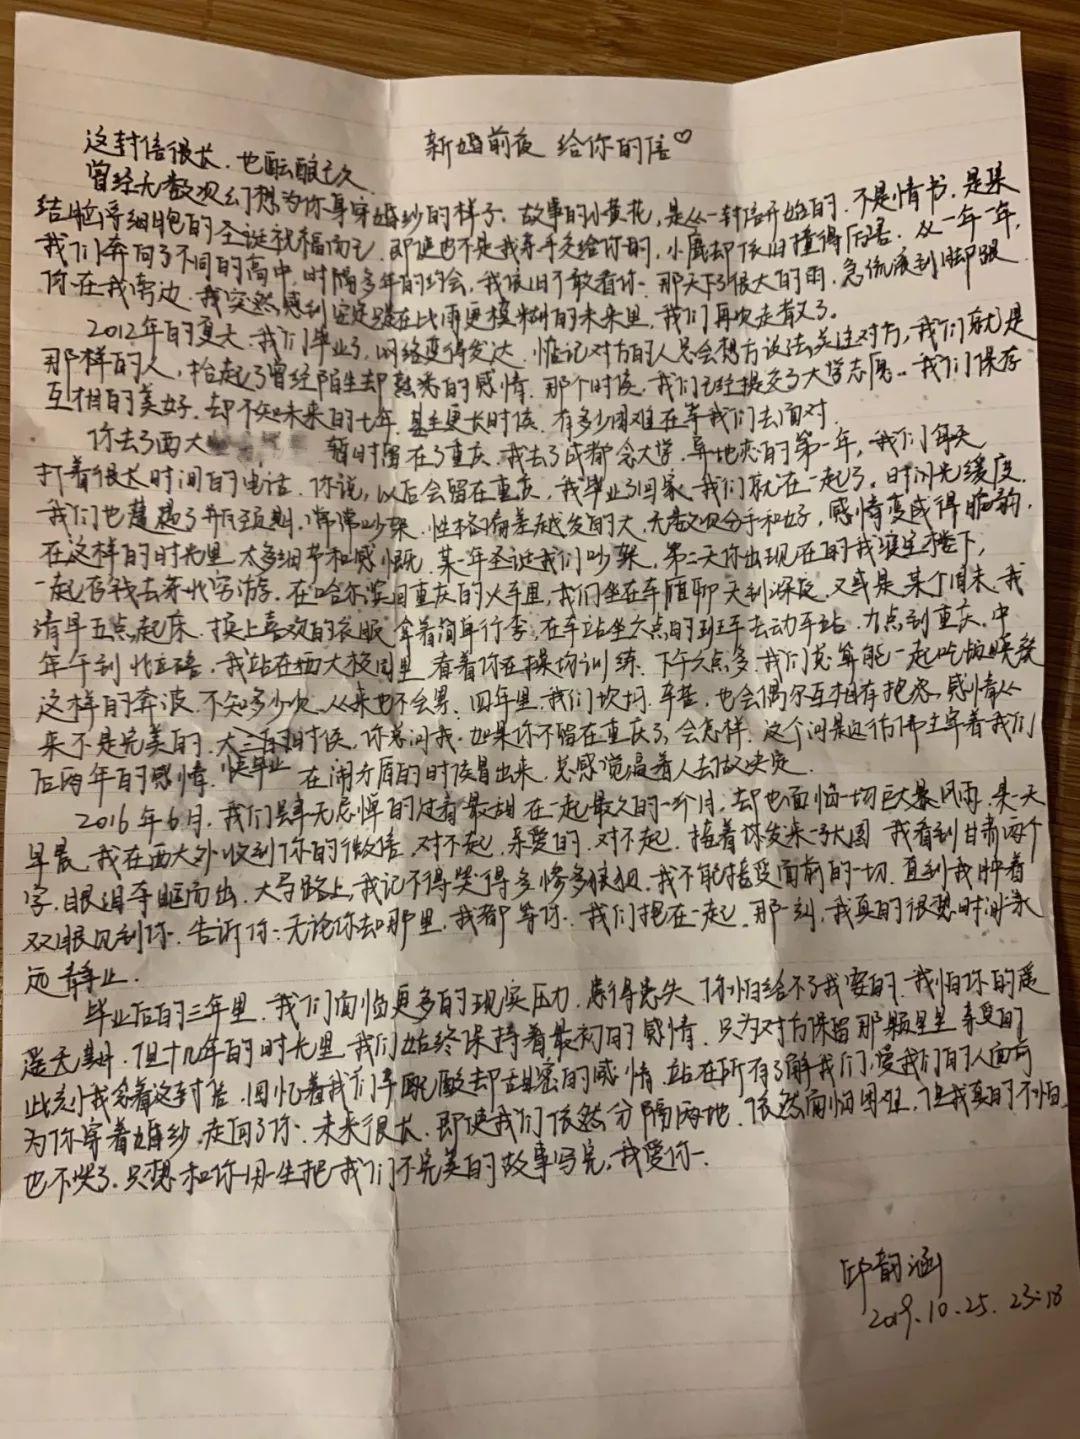 新婚前夜 给你的信♡
这封信很长.也酝酿已久.
曾经无数次幻想为你身穿婚纱的样子.故事的小黄花,是从一封信开始的.不是情书.是某
结脑浮细胞的圣诞祝福而已.即使也不是我亲手交给你的,小鹿却依旧撞得厉害.从一年一年,
我们奔向了不同的高中.时隔多年的约会,我依旧不敢看你.那天下了很大的雨.急流滚到脚跟
你在我旁边.我突然感到安定.在比雨更模糊的未来里,我们再次走散了.
2012年的夏天.我们毕业了,网络变得发达.惦记对方的人总会想方设法关注对方,我们就是
那样的人,拾起了曾经陌生却熟悉的感情.那个时候.我们已经提交了大学志愿..我们保存
互相的美好.却不知未来的七年.甚至更长时候.有多少困难在等我们去面对.
你去了西大 暂时留在了重庆.我去了成都念大学.异地恋的第一年,我们每天
打着很长时间的电话.你说,以后会留在重庆,我毕业了回家.我们就在一起了.时间光缓度.
我们也遭遇了瓶颈期.常常吵架.性格偏差越发的大.无数次分手和好,感情变成得脆弱.
在这样的时光里.太多细节和感慨.某年圣诞我们吵架,第二天你出现在的我寝室楼下,
一起存钱去穷游.在哈尔滨回重庆的火车里,我们坐在车厢聊天到深夜.又或是某个周末.我
清早五点起床.换上喜欢的衣服.拿着简单行李.在车站坐六点的班车去动车站.九点到重庆.中
年午到北碚.我站在西大校园里.看着你在操场训练.下午六点多.我们总算能一起吃顿晚餐
这样的奔波.不知多少次.从来也不会累.四年里.我们坎坷.辛苦.也会偶尔互相有抱怨.感情从
来不是完美的.大三的时候,你总问我.如果你不留在重庆了,会怎样.这个问题仿佛主宰着我们
后两年的感情.快毕业 在闹矛盾的时候冒出来.总感觉逼着人去做决定.
2016年6月.我们肆无忌惮的过着最甜在一起最久的一个月.却也面临一切巨大暴风雨.某一天
早晨.我在西大外收到了你的微信.对不起.亲爱的.对不起.接着你发来一张图 我看到甘肃两个
字.眼泪夺眶而出.大马路上,我记不得哭得多惨多狼狈.我不能接受面前的一切.直到我肿着
双眼见到你.告诉你:无论你去哪里.我都等你.我们抱在一起.那一刻,我真的很想时间永
远静止.
毕业后的三年里.我们面临更多的现实压力.患得患失.你怕给不了我要的.我怕你的遥
遥无期.但十几年的时光里.我们始终保持着最初的感情.只为对方保留那颗星星.亲爱的
此刻我拿着这封信.回忆着我们辛酸却甜蜜的感情.站在所有了解我们.爱我们的人面前
为你穿着婚纱.走向了你.未来很长.即使我们依然分隔两地.依然面临困难.但我真的不怕.
也不哭了.只想和你用一生把我们不完美的故事写完,我爱你.
邱韵涵
2019.10.25.23:18